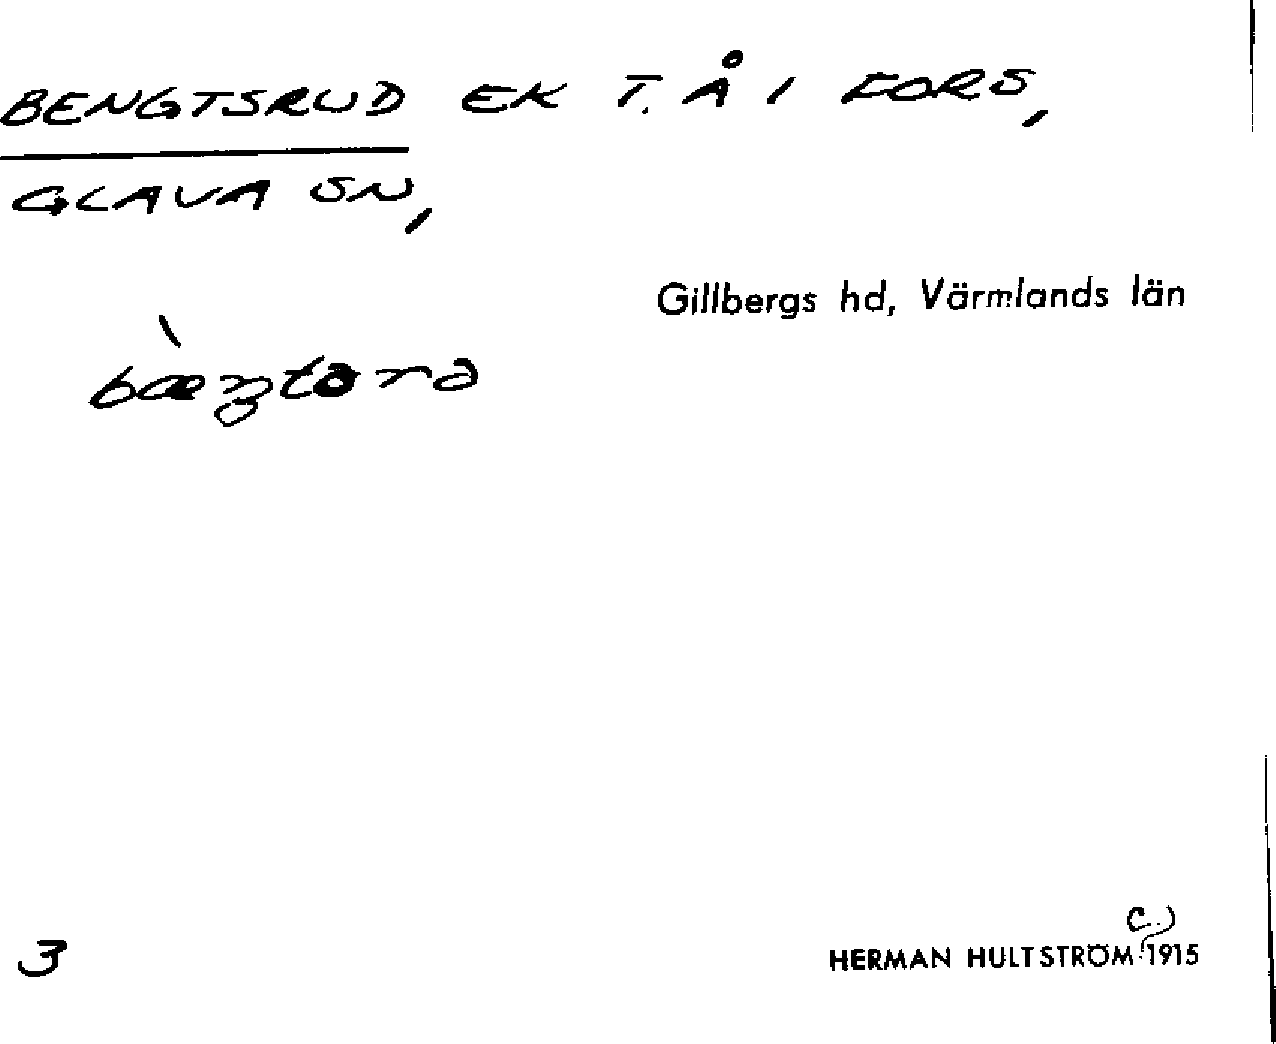 BENGTSRUD EK T. Å I FORS,
GLAVA SN,
Gillbergs hd, Värmlands län
3
(..)
HERMAN HULTSTRÖM 1915